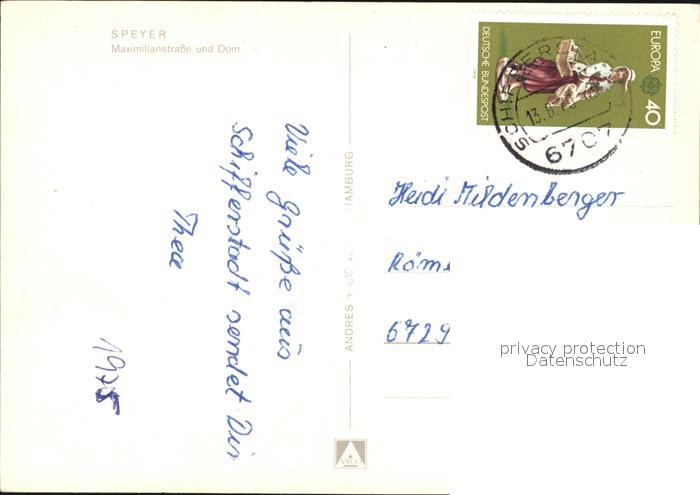 SPEYER
Maximilianstraße und Dom
Viele Grüße aus
Schifferstadt sendet Dir
Thea
1975
ANDRES + HAMBURG
ANCO
EUROPA
40
DEUTSCHE BUNDESPOST
SCHIFFERSTADT
13.8.
6707
Heidi Mildenberger
Röm
6729
privacy protection
Datenschutz